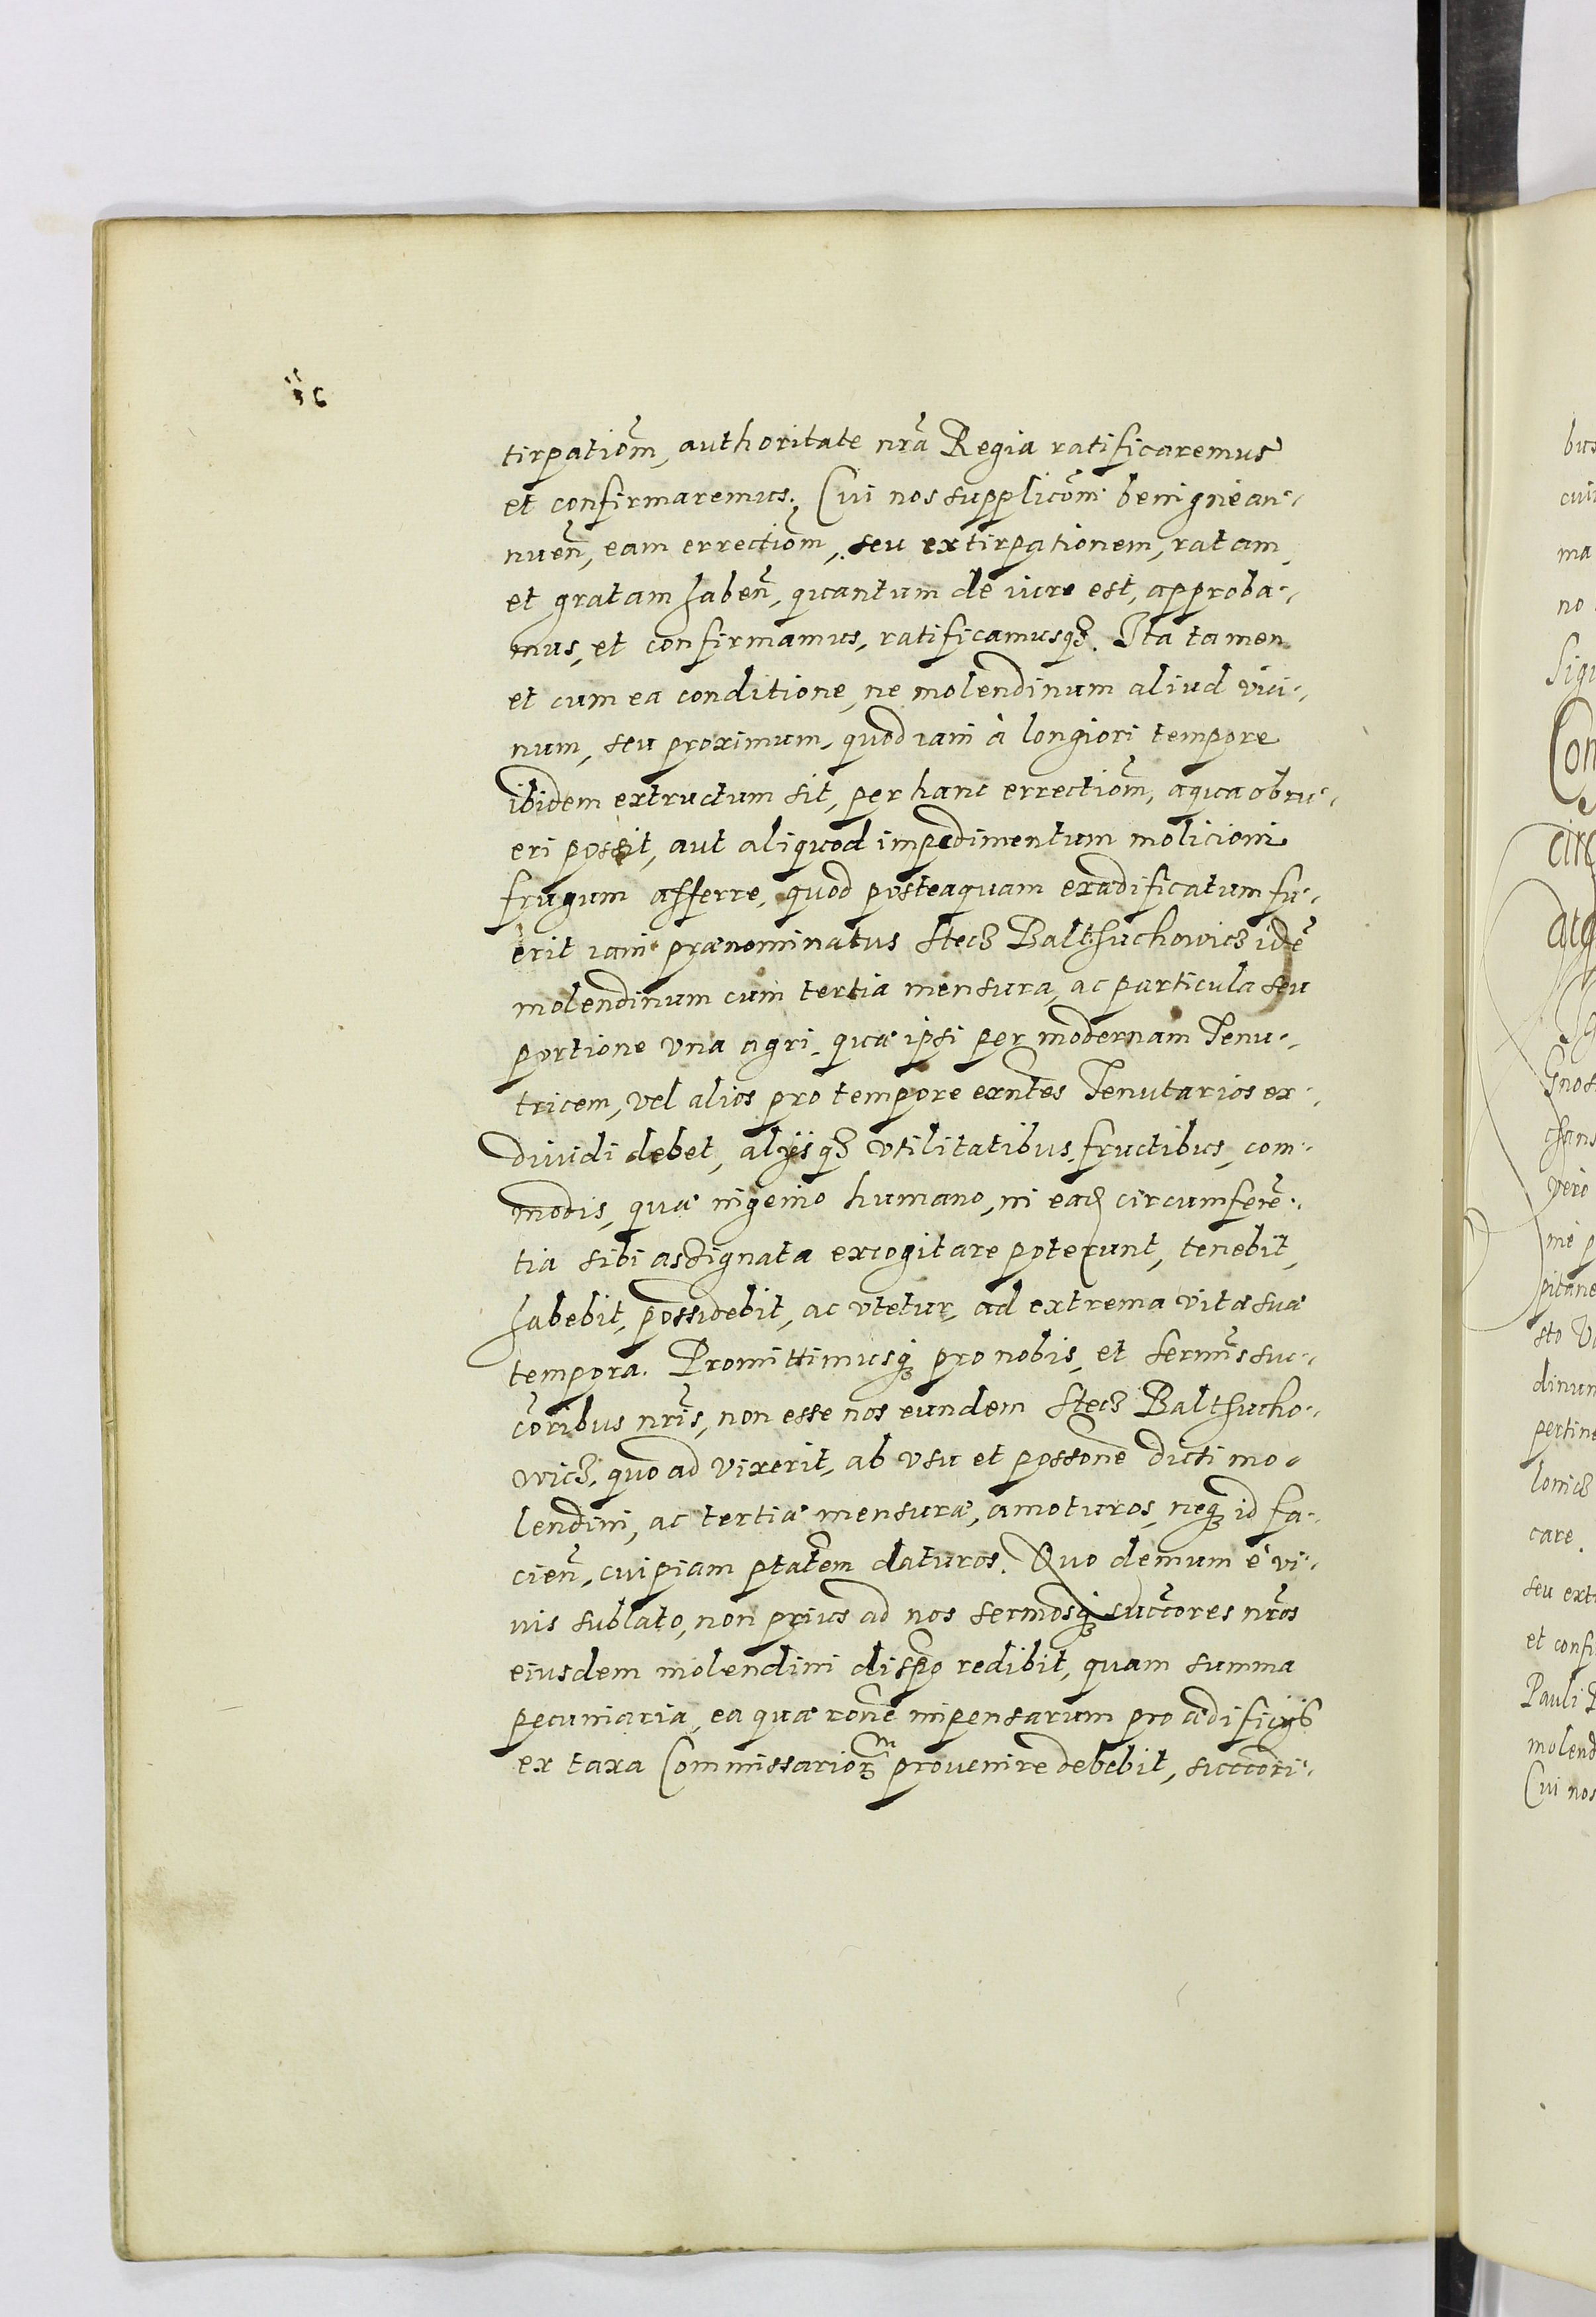 tirpatiõm, authoritate nr̃a Regia ratificaremus
et confirmaremus. Cui nos supplicõm benigne an-
nueñ, eam errectiõm, seu extirpationem, ratam
et gratam habeñ, quantum de iure est, approba-
mus, et confirmamus, ratificamusqȝ. Ita tamen
et cum ea conditione, ne molendinum aliud vici-
num, seu proximum, quod iam à longiori tempore
ibidem extructum sit, per hanc errectiõm, aqua obru-
eri possit, aut aliquod impedimentum molicioni
frugum afferre, quod posteaquam exædificatum fu-
erit iam prænominatus Stecz Balthuchowicz idẽ
molendinum cum tertia mensura, ac particula seu
portione vna agri, quæ ipsi per modernam Tenu-
tricem, vel alios pro tempore exñtes Tenutarios ex-
diuidi debet, alijsqȝ vtilitatibus, fructibus, com-
modis, quæ ingenio humano, in ead circumferẽ-
tia sibi assignata excogitare poterunt, tenebit,
habebit, possidebit, ac vtetur, ad extrema vitæ suæ
tempora. Promittimusqȝ pro nobis, et Sermis̃ suc-
cõribus nr̃is, non esse nos eundem Stecz Balthucho-
wicz, quo ad vixerit, ab vsu et possone dicti mo-
lendini, ac tertiæ mensuræ, amoturos, neqȝ id fa-
cieñ, cuipiam ptatem daturos. Quo demum è vi-
uis sublato, non prius ad nos sermosqȝ succ̃ores nr̃os
eiusdem molendini dispo redibit, quam summa
pecuniaria, ea quæ rone impensarum pro ædificijs
ex taxa Commissariorȝ m prouenire debebit, succori-
bus
ma
no
Con
Gnos
vero
sto
dinum
care.
seu ext
et confi
Pauli
molend
Cui nos